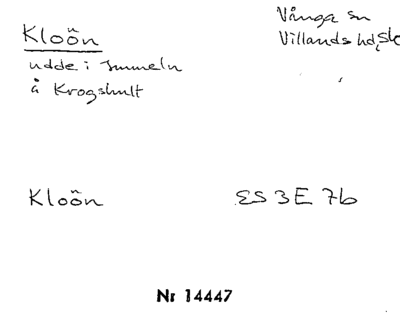 Kloön
Vånga sn
Villands hd, Sk
udde i Immeln
å Krogshult
Kloön
ES 3E 7b
Nr 14447